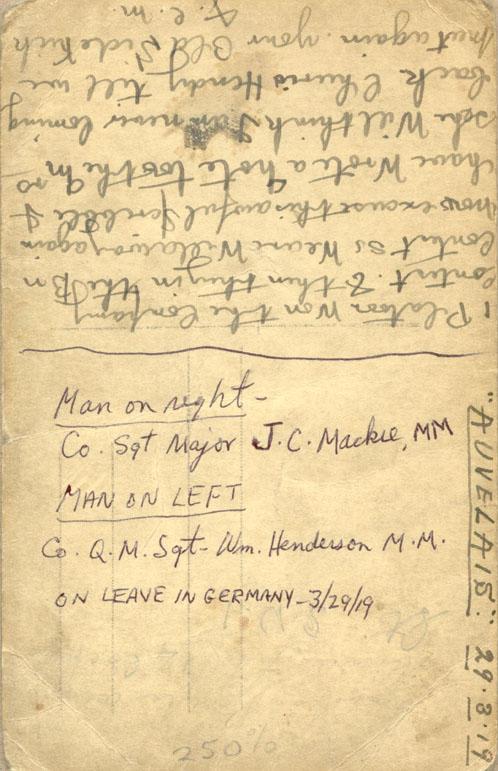 1 Platoon Won the Company
Contest & then in the Bn
Contest so weare again
now excuse this awful scribble I
have Wrote a note too the so
she Will think I am never Coming
back Cheerio Hendy till we
meet again. your Old Side Kick
J.C.M.
Man on right -
Co. Sgt Major J.C. Mackie, MM
MAN ON LEFT
Co. Q.M. Sgt - Wm. Henderson M.M.
ON LEAVE IN GERMANY - 3/29/19
"AUVELAIS." 29.3.19
250%